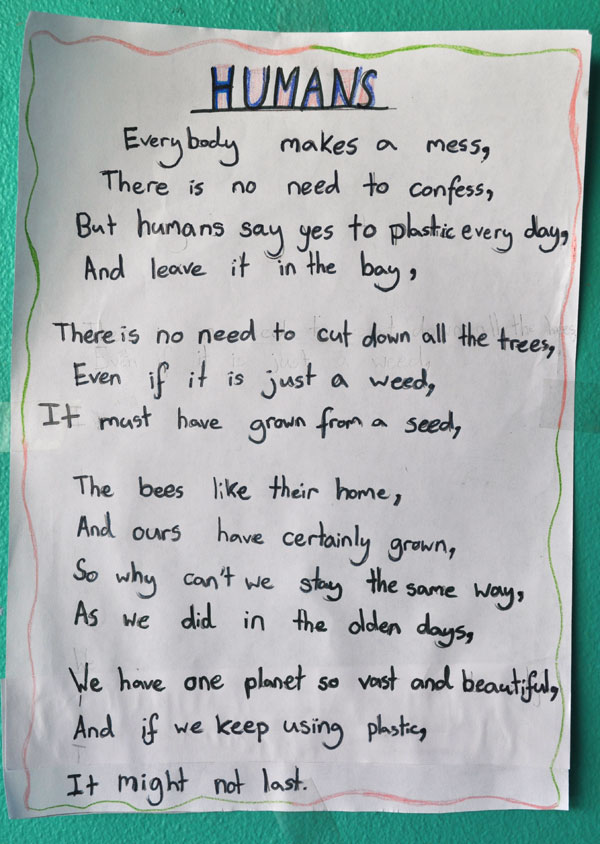 HUMANS
Everybody makes a mess,
There is no need to confess,
But humans say yes to plastic every day,
And leave it in the bay,
There is no need to cut down all the trees,
Even if it is just a weed,
It must have grown from a seed,
The bees like their home,
And ours have certainly grown,
So why can't we stay the same way,
As we did in the olden days,
We have one planet so vast and beautiful,
And if we keep using plastic,
It might not last.